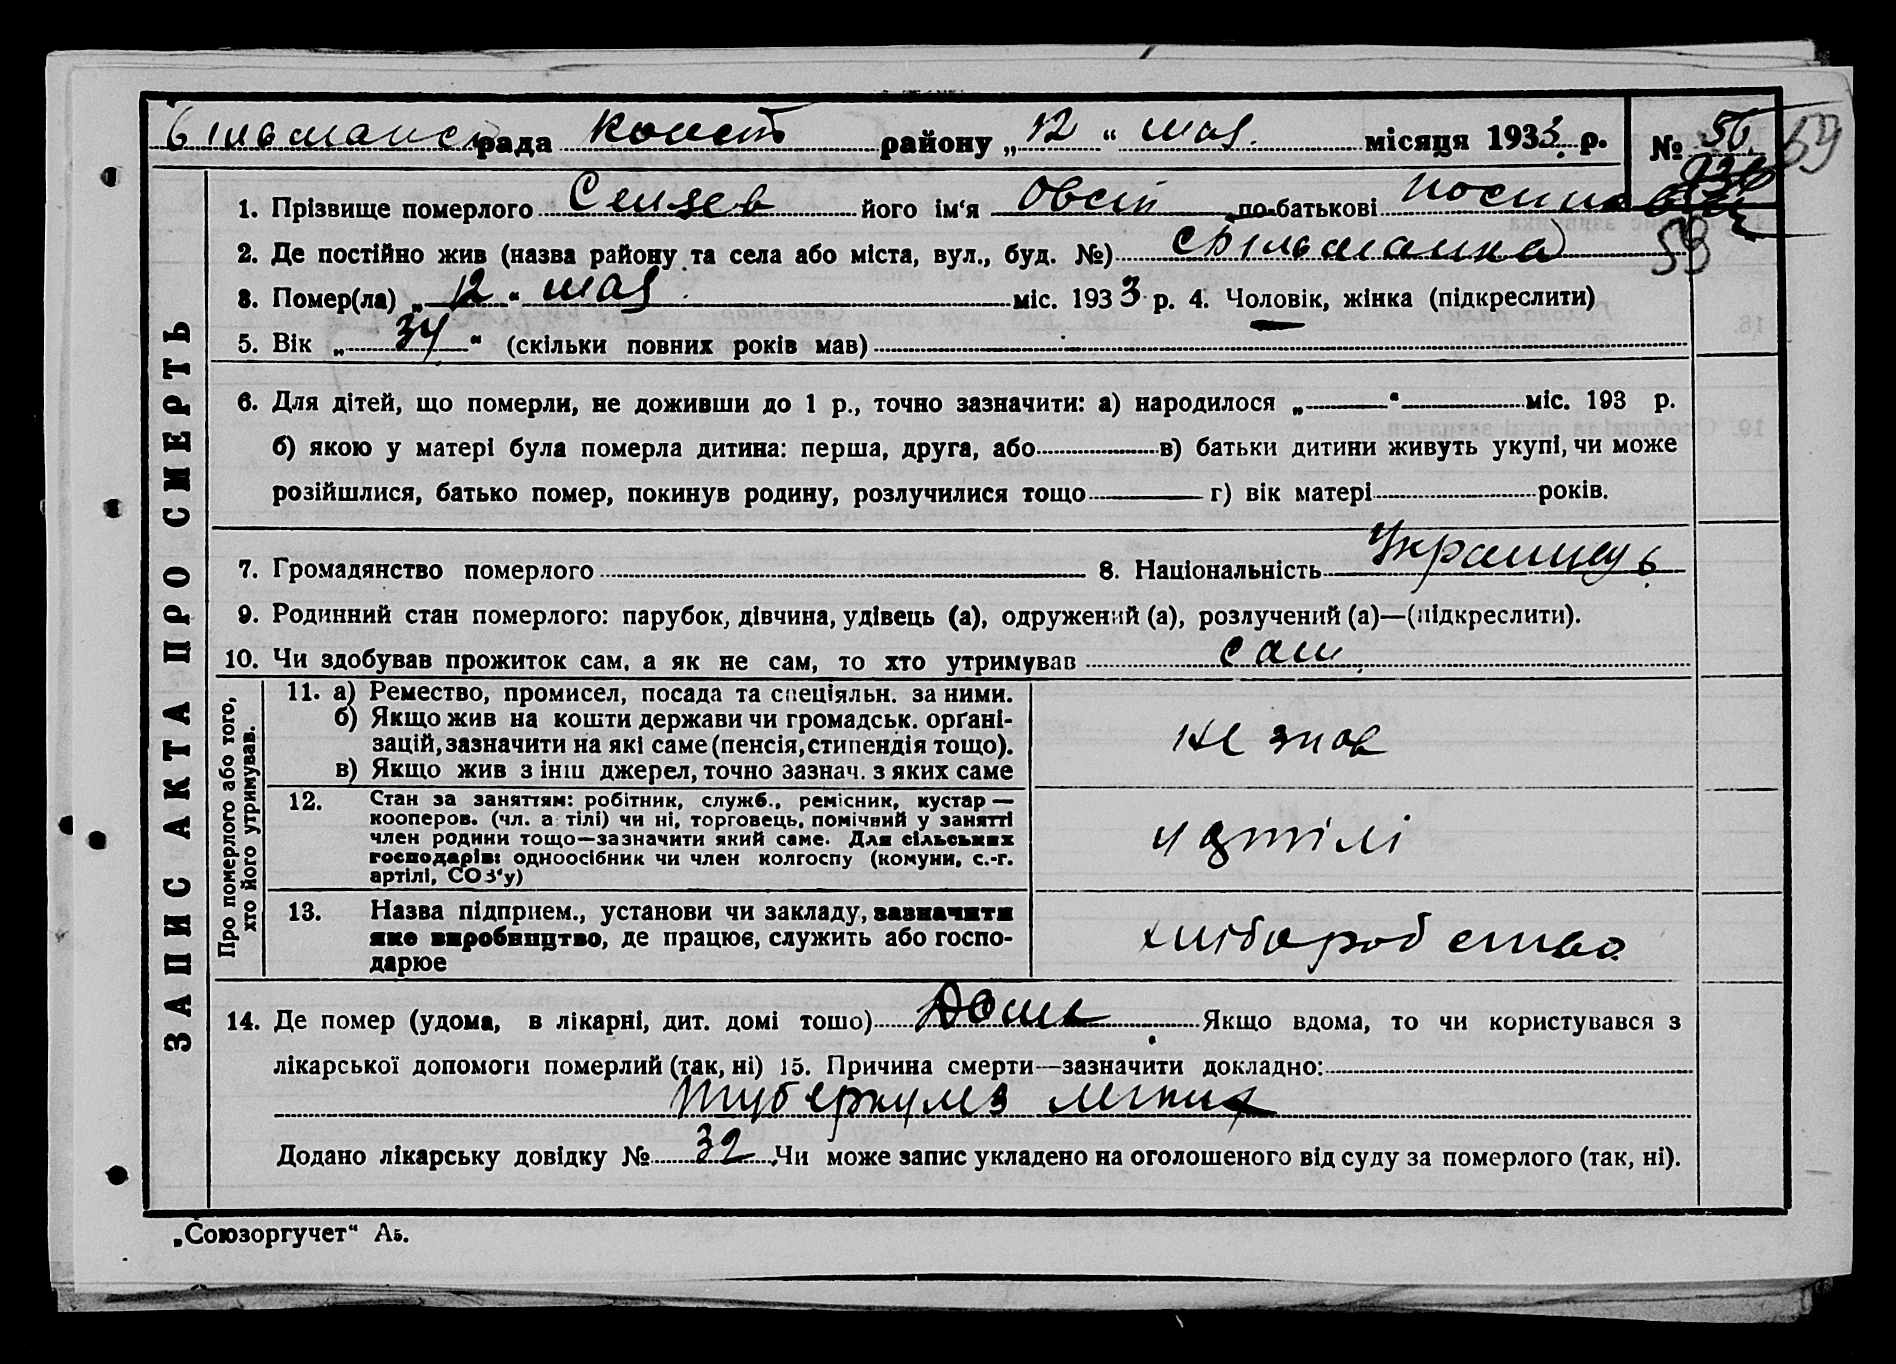 рада район у „12“ мая місяця 1933 р. № 56 59
1. Прізвище померлого його ім‘я Овсій по-батькові
2. Де постійно жив (назва району та села або міста, вул., буд. №)
59
3. Помер(ла) „12“ мая міс. 1933 р. 4. Чоловік, жінка (підкреслити)
5. Вік „34“ (скільки повних років мав)
6. Для дітей, що померли, не доживши до 1 р., точно зазначити: а) народилося „ “ міс. 193 р.
б) якою у матері була померла дитина: перша, друга, або в) батьки дитини живуть укупі, чи може
розійшлися, батько помер, покинув родину, розлучилися тощо г) вік матері років.
7. Громадянство померлого 8. Національність Украинець
9. Родинний стан померлого: парубок, дівчина, удівець (а), одружений (а), розлучений (а)—(підкреслити).
10. Чи здобував прожиток сам, а як не сам, то хто утримував сам
ЗАПИС АКТА ПРО СМЕРТЬ
Про померлого або того,
хто його утримував.
11. а) Ремество, промисел, посада та спеціяльн. за ними.
б) Якщо жив на кошти держави чи громадськ. орґані-
зацій, зазначити на які саме (пенсія, стипендія тощо).
в) Якщо жив з інш джерел, точно зазнач. з яких саме
не знав
12. Стан за заняттям: робітник, служб., ремісник, кустар —
кооперов. (чл. а тілі) чи ні, торговець, помічний у занятті
член родини тощо—зазначити який саме. Для сільських
господарів: одноосібник чи член колгоспу (комуни, с.-г.
артілі, СОЗ‘у)
у артілі
13. Назва підприєм., установи чи закладу, зазначити
яке виробництво, де працює, служить або госпо-
дарює
хліборобство
14. Де помер (удома, в лікарні, дит. домі тощо) Дома Якщо вдома, то чи користувався з
лікарської допомоги померлий (так, ні) 15. Причина смерти—зазначити докладно:
туберкулз легких
Додано лікарську довідку № 32 Чи може запис укладено на оголошеного від суду за померлого (так, ні).
„Союзоргучет“ А5.